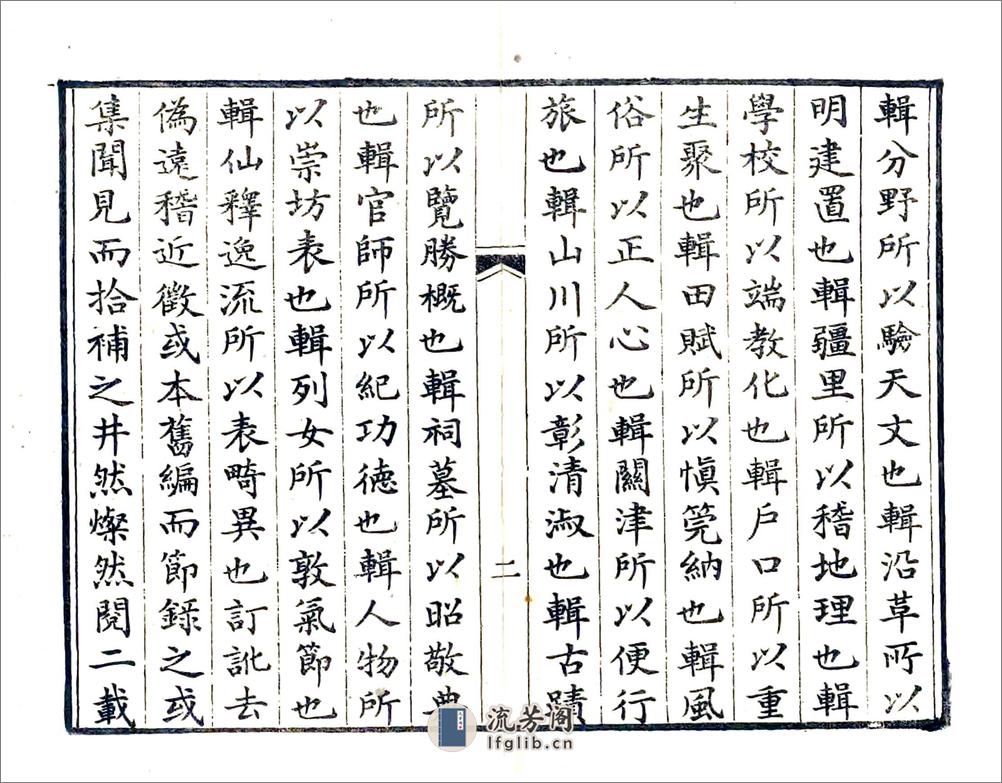 輯分野所以驗天文也輯沿革所以
明建置也輯疆里所以稽地理也輯
學校所以端教化也輯戶口所以重
生聚也輯田賦所以慎筦納也輯風
俗所以正人心也輯關津所以便行
旅也輯山川所以彰清淑也輯古蹟
二
所以覽勝概也輯祠墓所以昭敬典
也輯官師所以紀功德也輯人物所
以崇坊表也輯列女所以敦氣節也
輯仙釋逸流所以表畸異也訂訛去
偽遠稽近徵或本舊編而節錄之或
集聞見而拾補之井然燦然閱二載
流芳阁
lfglib.cn